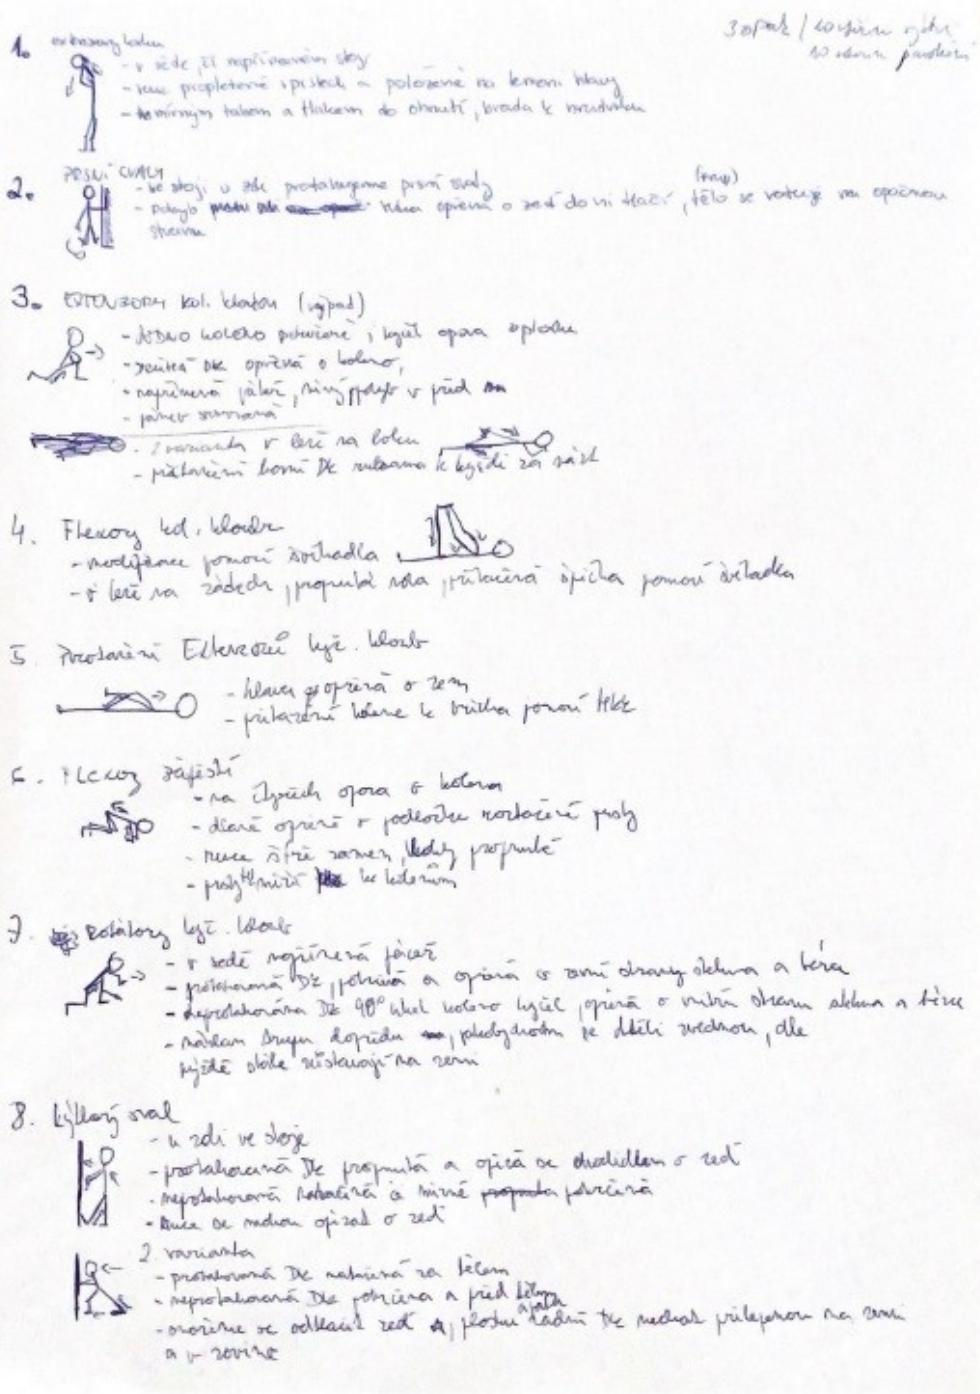 3 opak /
1. extenzory krku
- v sedě, či napřímeném stoji
- ruce propletené v prstech a položené na temeni hlavy
- mírným tahem a tlakem do ohnutí, brada k hrudníku
2. PRSNÍ SVALY
- ve stoji u zdi protahujeme prsní svaly
- ruka opřená o zeď do ní tlačí, (trup) tělo se rotuje na opačnou
stranu
3. EXTENZORY kol. kloubu (výpad)
- JEDNO KOLENO pokrčené, kyčel opora
- DK opřená o koleno,
- napřímená páteř, pohyb v před
- pánev
- 2 varianta v leže na boku
- přitažení horní DK rukama k hýždi za nárt
4. Flexory kol. kloubu
- modifikace pomocí švihadla
- v leže na zádech, propnutá noha, přitažená špička pomocí švihadla
5. Protažení Extenzorů kyč. kloubu
- hlava opřená o zem
- přitažení kolene k břichu pomocí HKK
6. Flexory zápěstí
- na čtyřech opora o kolena
- dlaně opřené o podložku roztažené prsty
- ruce šíře ramen, lokty propnuté
- prsty míří ke kolenům
7. Rotátory kyč. kloub
- v sedě napřímená páteř
- protahovaná DK, pokrčená a opřená o zevní strany stehna a bérce
- neprotahována DK 90° úhel koleno kyčel, opřená o vnitřní stranu stehna a bérce
- náklon trupu dopředu, zvednou, dle
hýždě stále zůstávají na zemi
8. Lýtkový sval
- u zdi ve stoje
- protahovaná DK propnutá a opírá se chodidlem o zeď
- neprotahovaná natažená či mírně pokrčená
- Ruce se mohou opírat o zeď
2. varianta
- protahovaná DK natažená za tělem
- neprotahovaná DK pokrčena a před tělem
- snažíme se odtlačit zeď, plosku a patu zadní DK nechat přilepenou na zemi
a v rovině